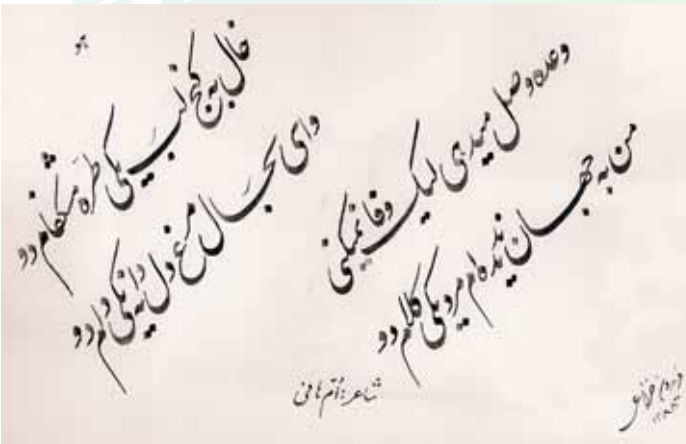 هو
خال به کنج لب یکی طره مشکفام دو
وای بحال مرغ دل دانه یکی دام دو
وعده وصل میدهی لیک وفا نمیکنی
من به جهان ندیده‌ام مرد یکی کلام دو
شاعر: اُم هانی